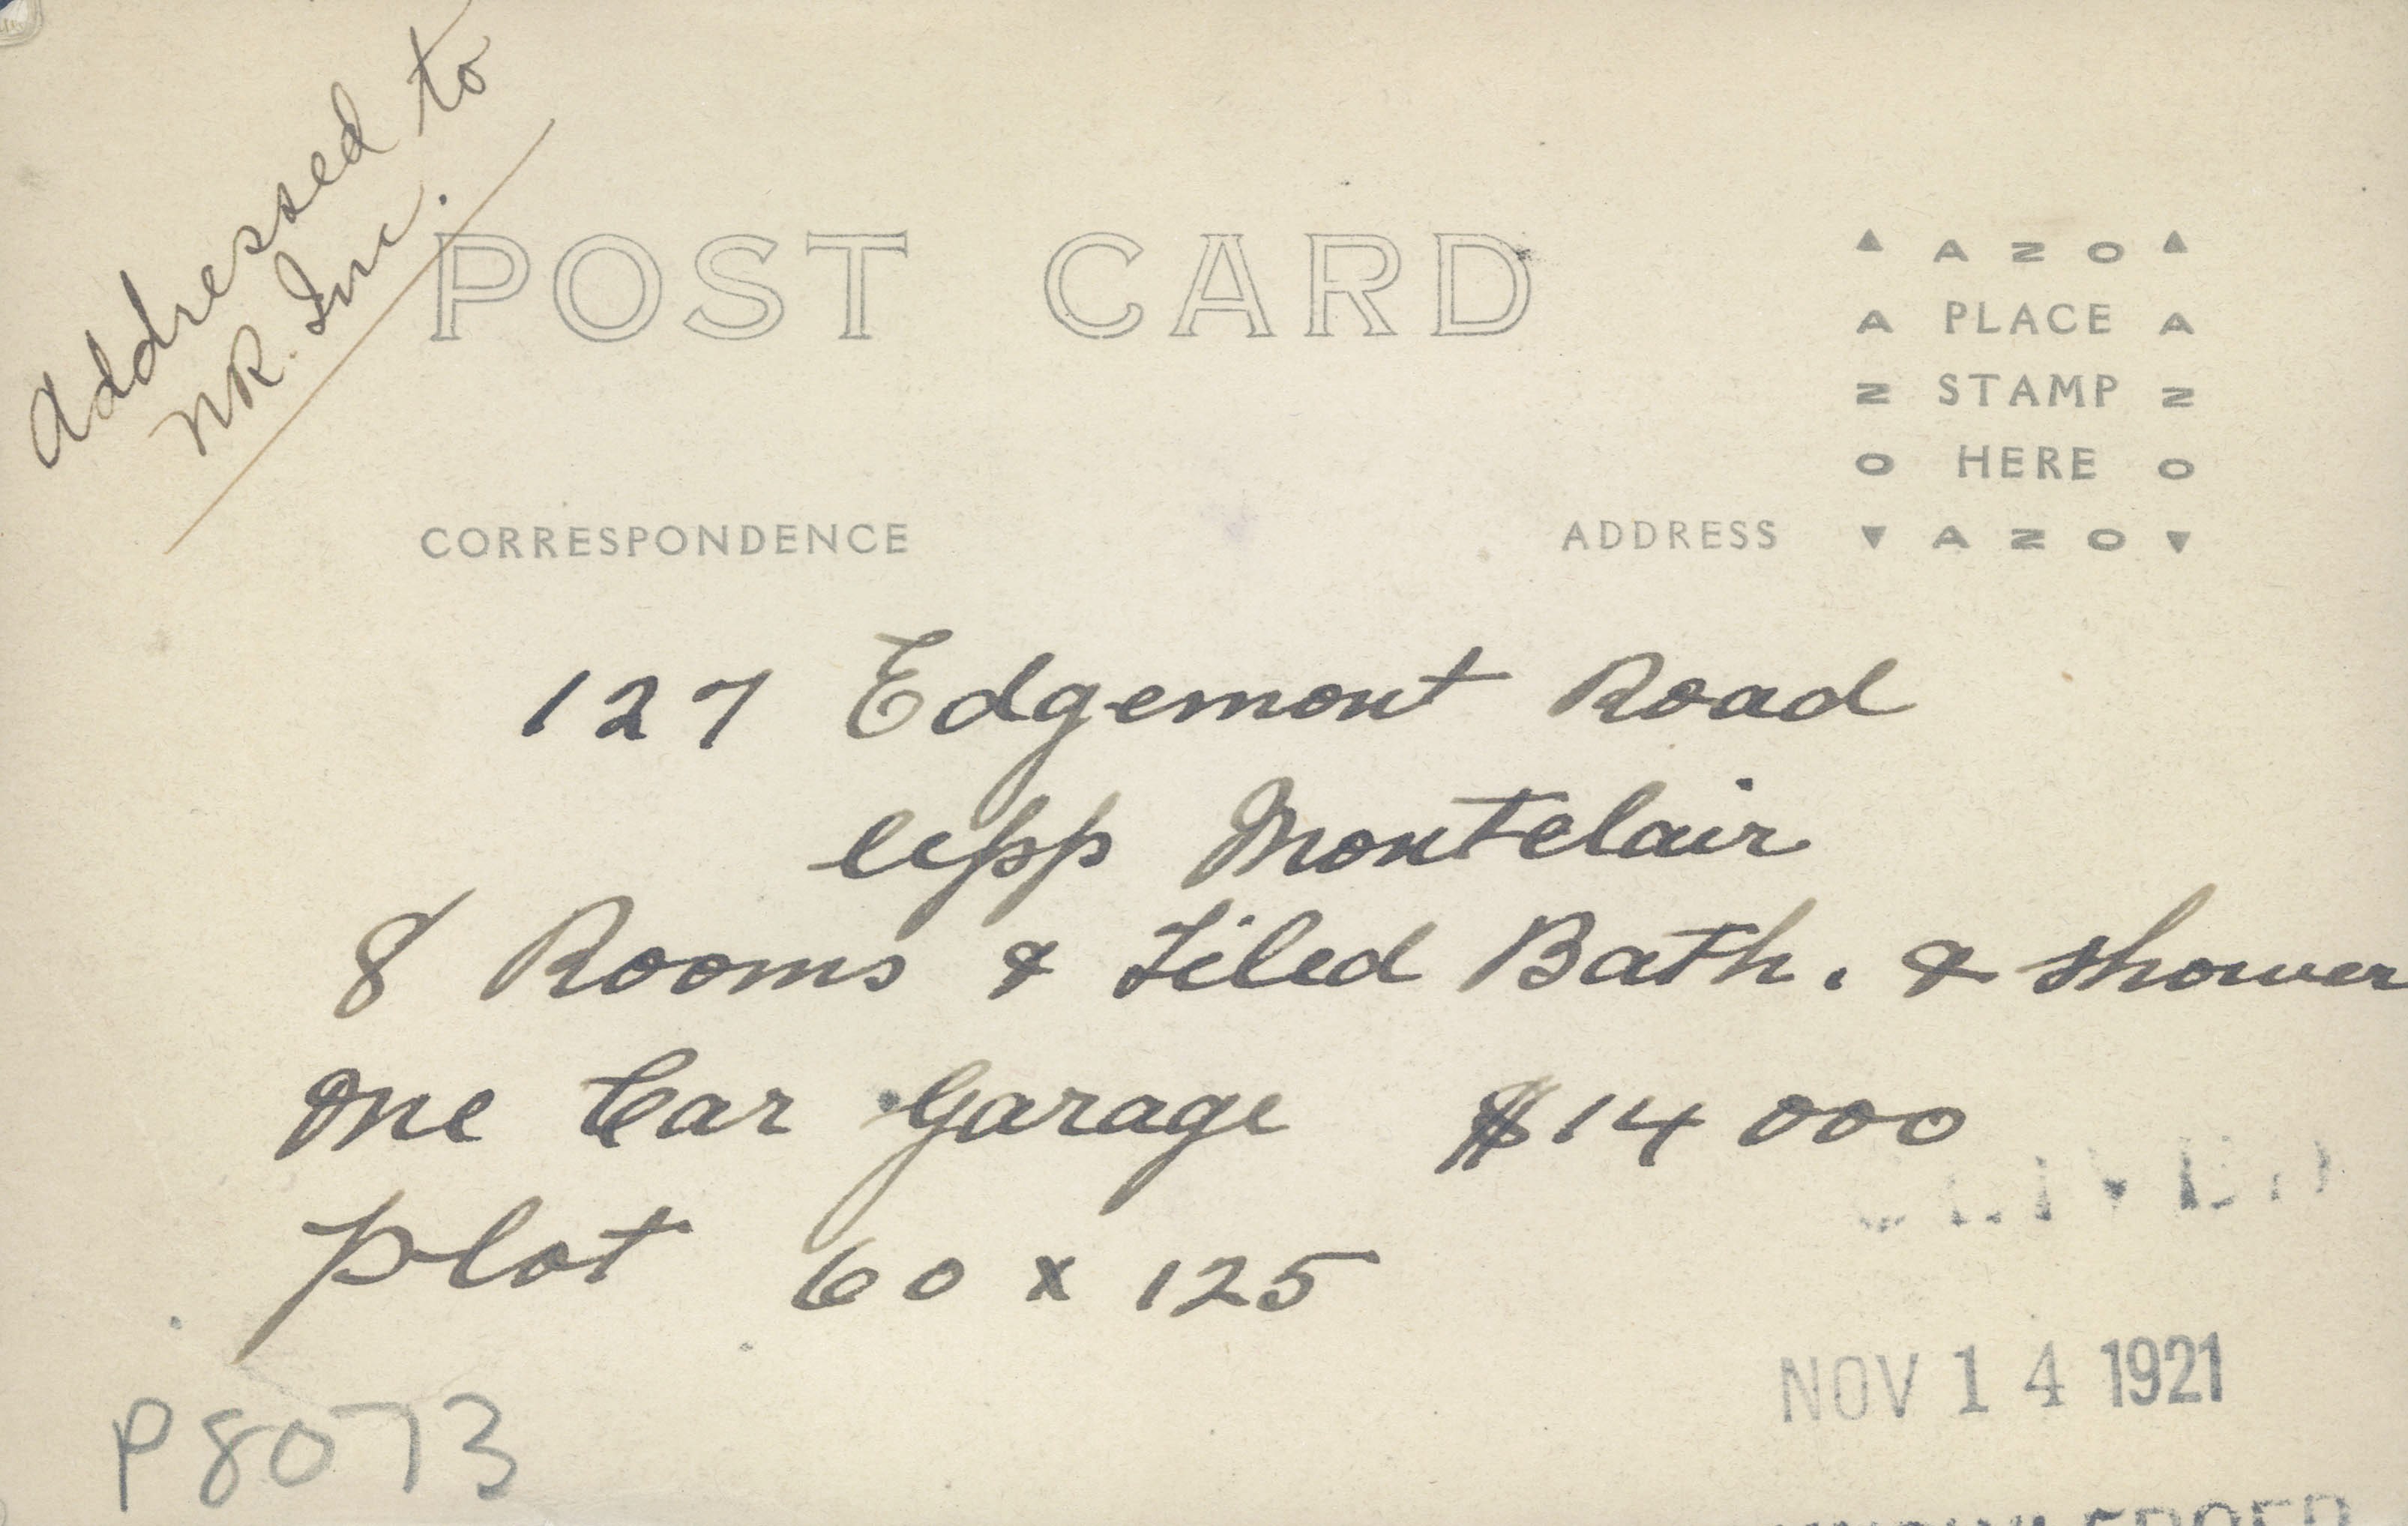 Addressed to
NR. Inc.
POST CARD
▲ A Z O ▲
A PLACE A
Z STAMP Z
O HERE O
▼ A Z O ▼
CORRESPONDENCE
ADDRESS
127 Edgemont Road
Upp Montclair
8 Rooms & Tiled Bath. & shower
One Car Garage $14 000
Plot 60 x 125
NOV 14 1921
P8073